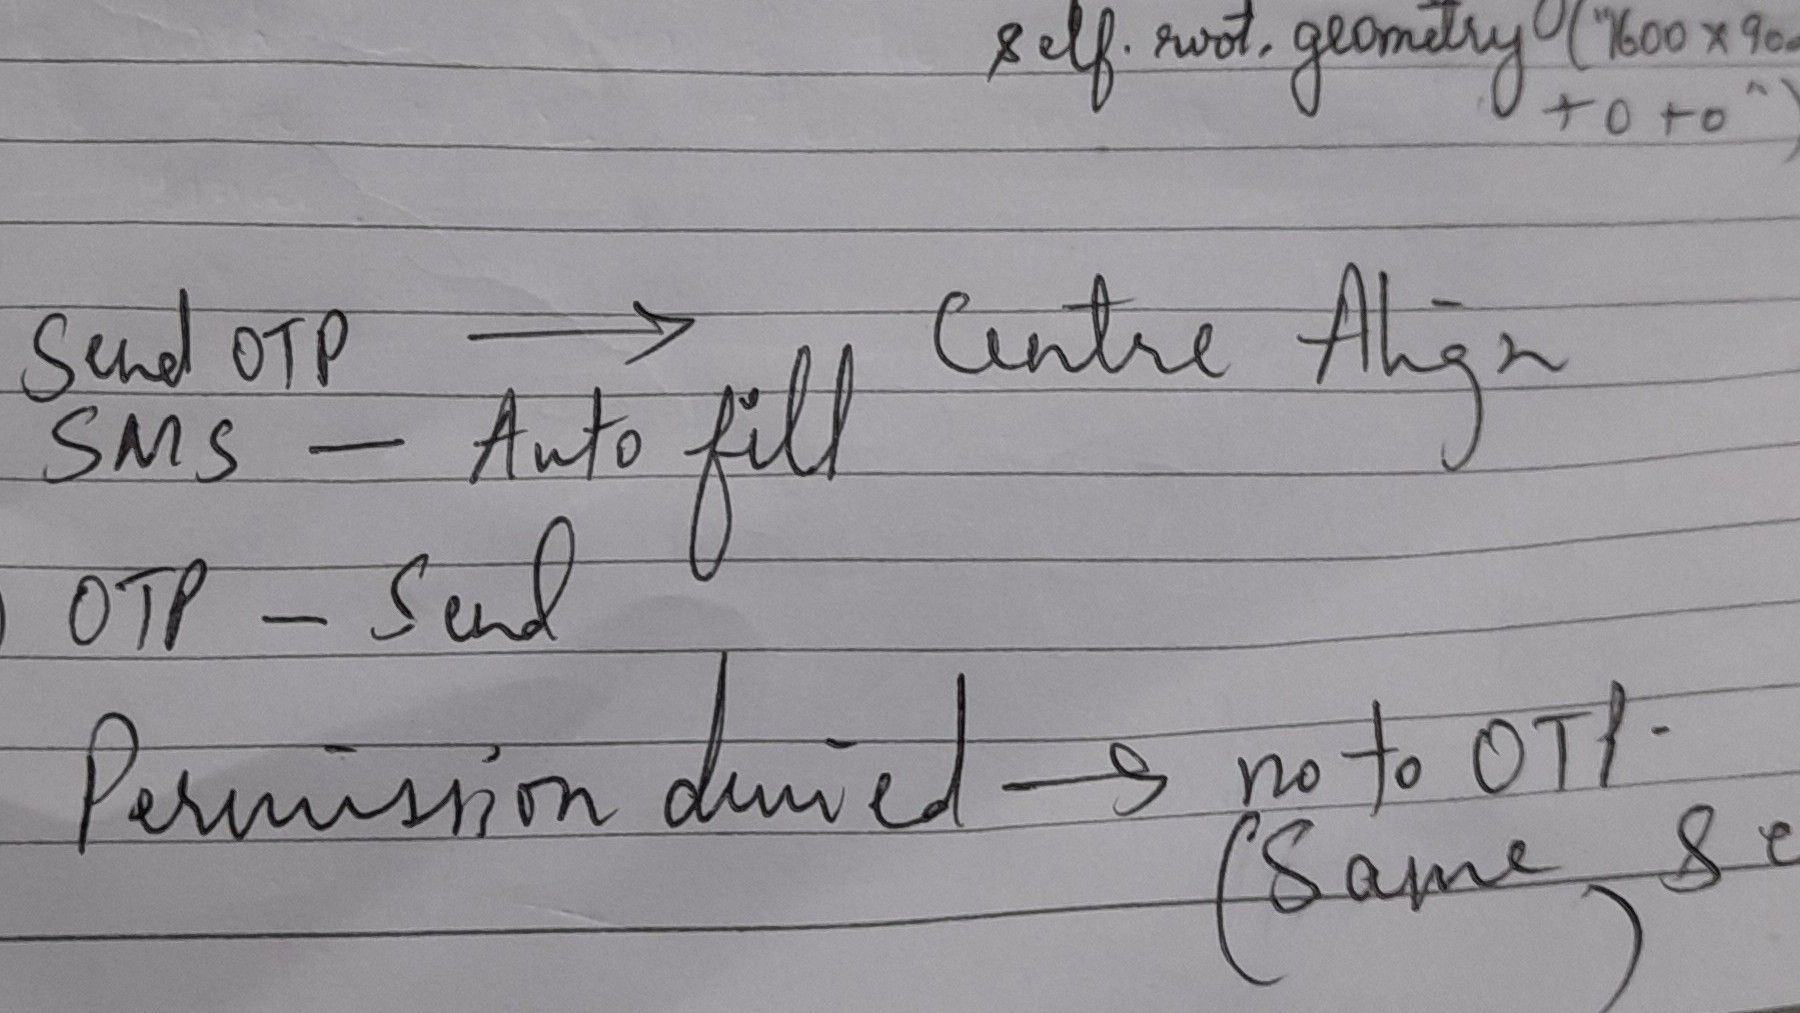 self.root.geometry("1600x900
+0+0")
Send OTP → Centre Align
SMS - Auto fill
) OTP - Send
Permission denied → no to OTP.
(Same
)